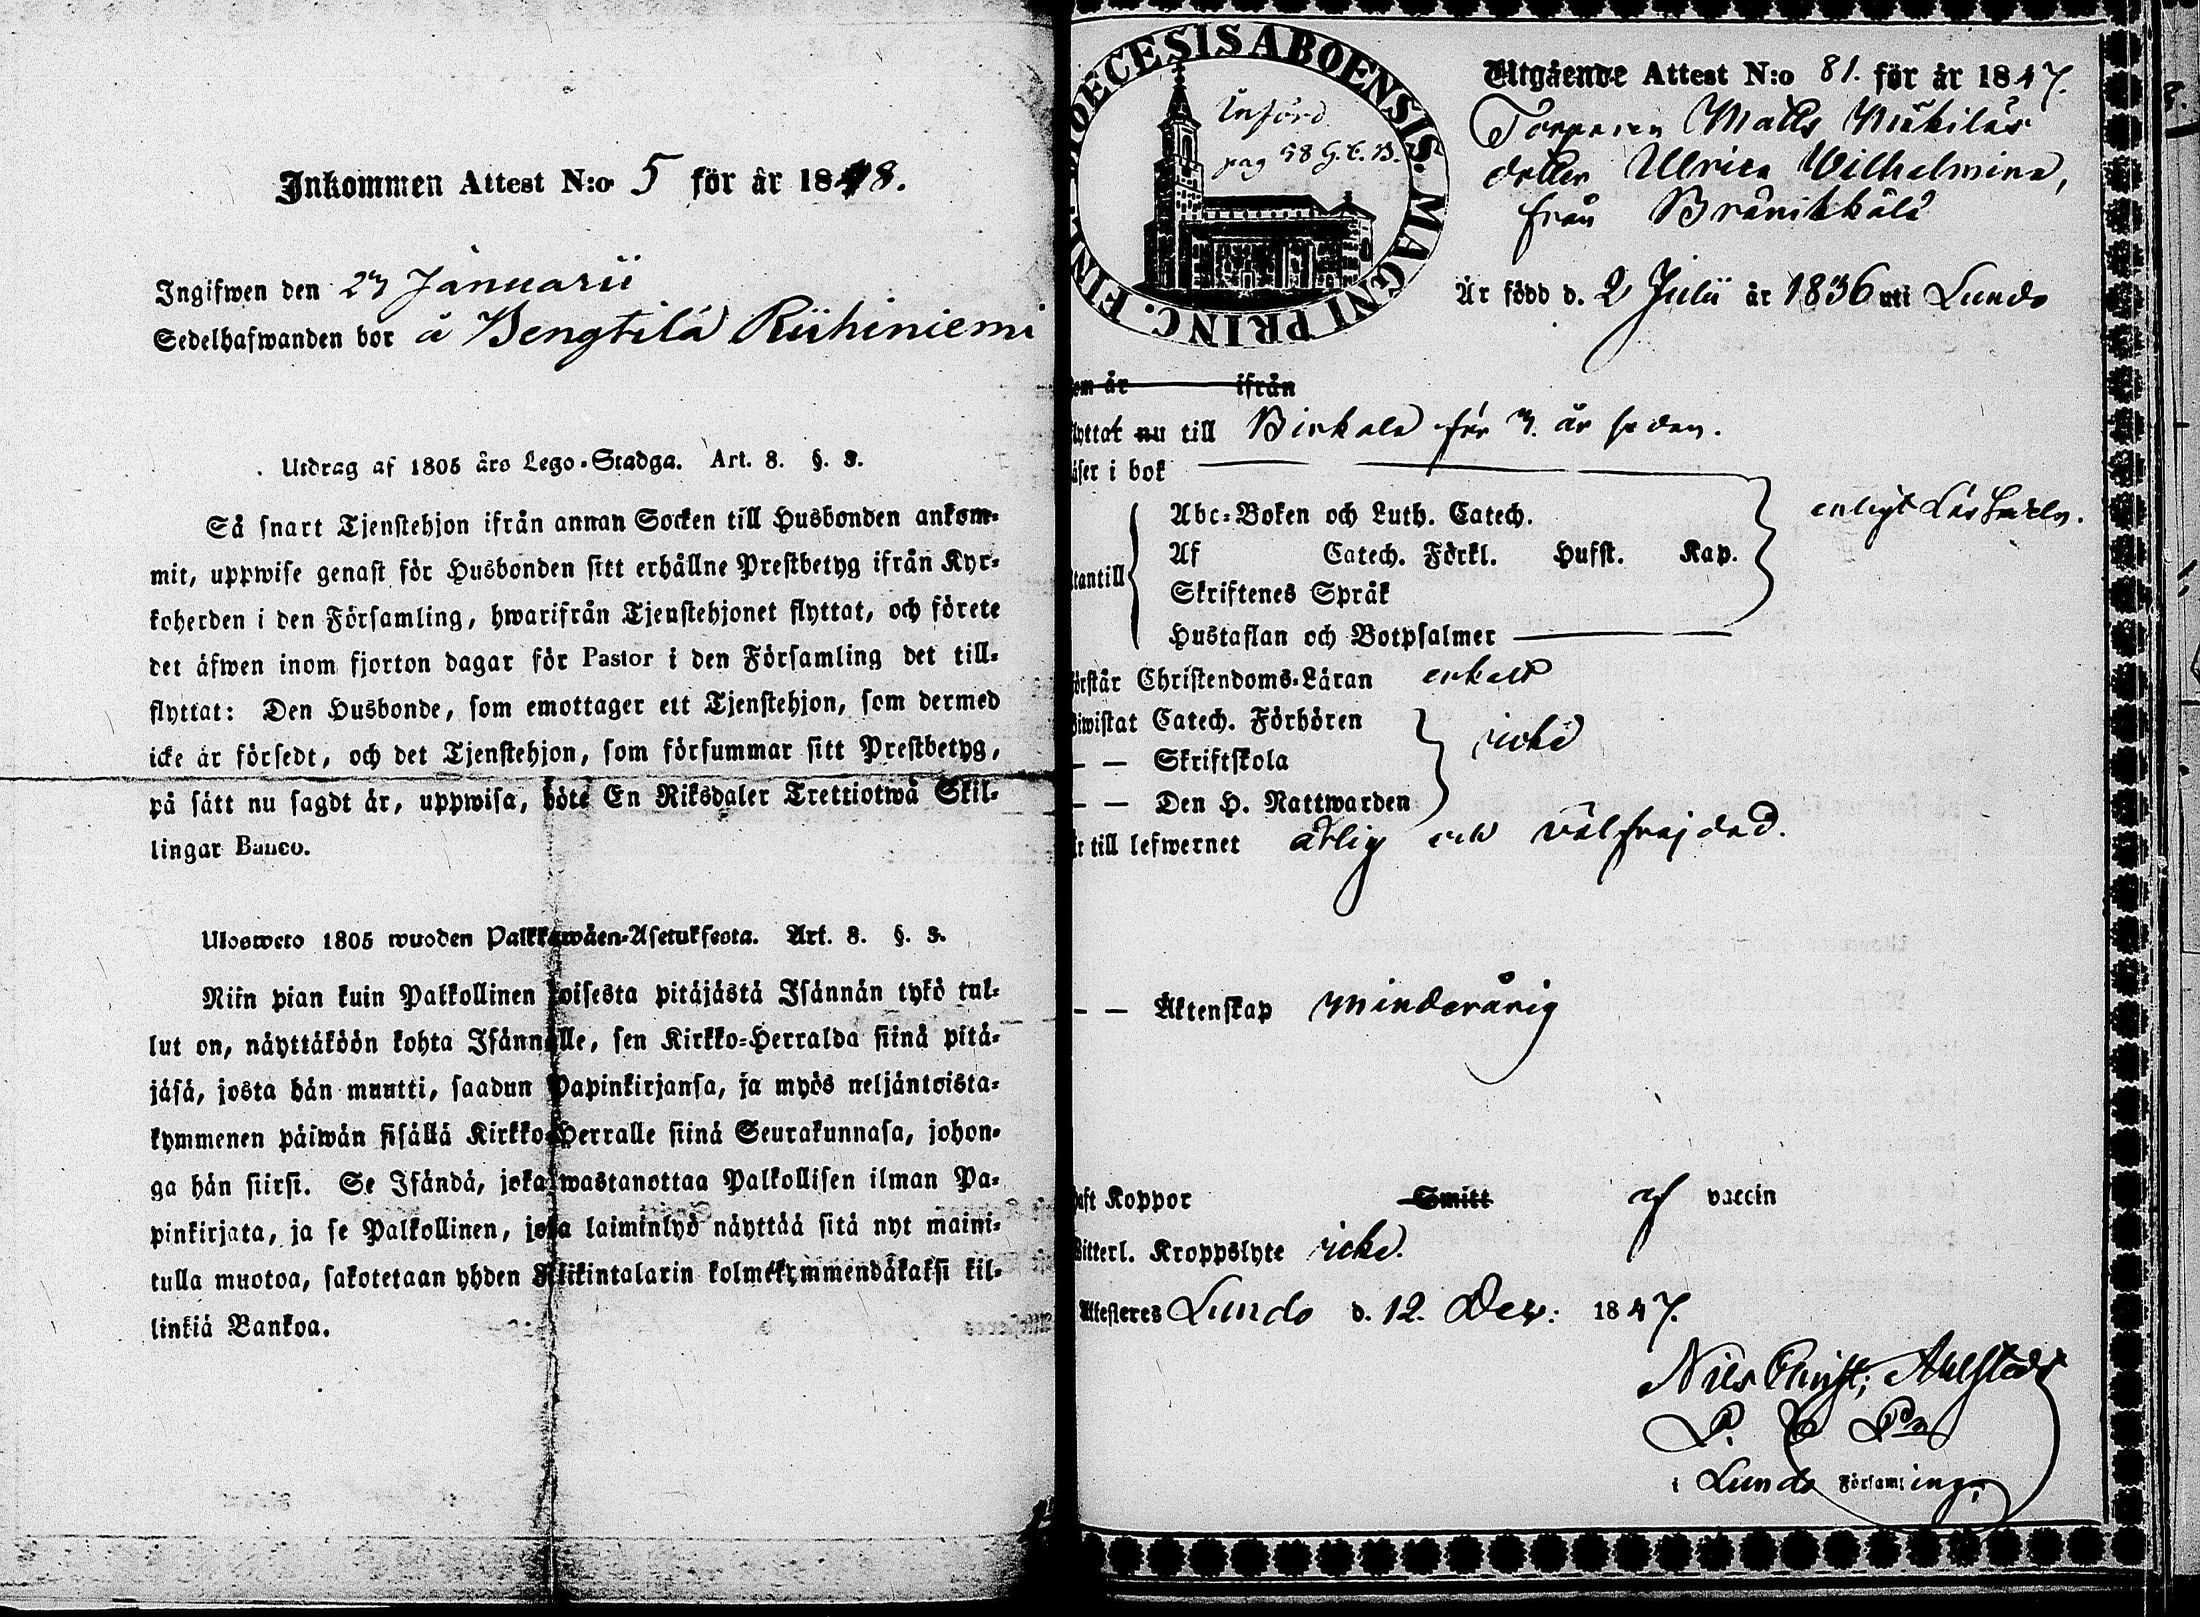 Inkommen Attest N:o 5 för år 1848.
Ingifwen den 23 Januarii
Sedelhafwanden bor å Bengtilä Riihiniemi
Utdrag af 1805 års Lego-Stadga. Art. 8. §. 3.
Så snart Tjenstehjon ifrån annan Socken till Husbonden ankom-
mit, uppwise genast för Husbonden sitt erhållne Prestbetyg ifrån Kyr-
koherden i den Församling, hwarifrån Tjenstehjonet flyttat, och förete
det äfwen inom fjorton dagar för Pastor i den Församling det till-
flyttat: Den Husbonde, som emottager ett Tjenstehjon, som dermed
icke är försedt, och det Tjenstehjon, som försummar sitt Prestbetyg,
på sätt nu sagdt är, uppwisa, böte En Riksdaler Trettiotwå Skil-
lingar Banco.
Ulosweto 1805 wuoden Palkkawäen-Asetuksesta. Art. 8. §. 3.
Niin pian kuin Palkollinen toisesta pitäjästä Isännän tykö tul-
lut on, näyttäköön kohta Isännälle, sen Kirkko-Herralda siinä pitä-
jäsä, josta hän muutti, saadun Papinkirjansa, ja myös neljäntoista-
kymmenen päiwän sisällä Kirkko-Herralle siinä Seurakunnasa, johon-
ga hän siirsi. Se Isändä, joka wastanottaa Palkollisen ilman Pa-
pinkirjata, ja se Palkollinen, joka laiminlyö näyttää sitä nyt maini-
tulla muotoa, sakotetaan yhden Riikintalarin kolmekymmendäkaksi kil-
linkiä Bankoa.
DIOECESIS ABOENSIS. MAGNI PRINC. FINL.
Införd
pag 58 G.C.B.
Utgående Attest N:o 81. för år 1847.
Torparen Matts Mickiläs
dotter Ulrica Wilhelmina,
från Bränikkälä
Är född d. 2 Julii år 1836 uti Lundo
om år ifrån
lyttat nu till Birkala för 3. år sedan.
äser i bok
Abc-Boken och Luth. Catech. enligt Läs Sedeln.
Af Catech. Förkl. Husst. Kap.
tantill
Skriftenes Språk
Hustaflan och Botpsalmer
örstår Christendoms-Läran enkelt
iwistat Catech. Förhören
— — Skriftskola icke
— — Den H. Nattwarden
r till lefwernet ärlig och välfrejdad.
— — Äktenskap minderårig
aft Koppor Smitt af vaccin
itterl. Kroppslyte icke.
Attesteres Lundo d. 12. Dec: 1847.
Nils Christ: Ahlstedt
i Lundo Församling.